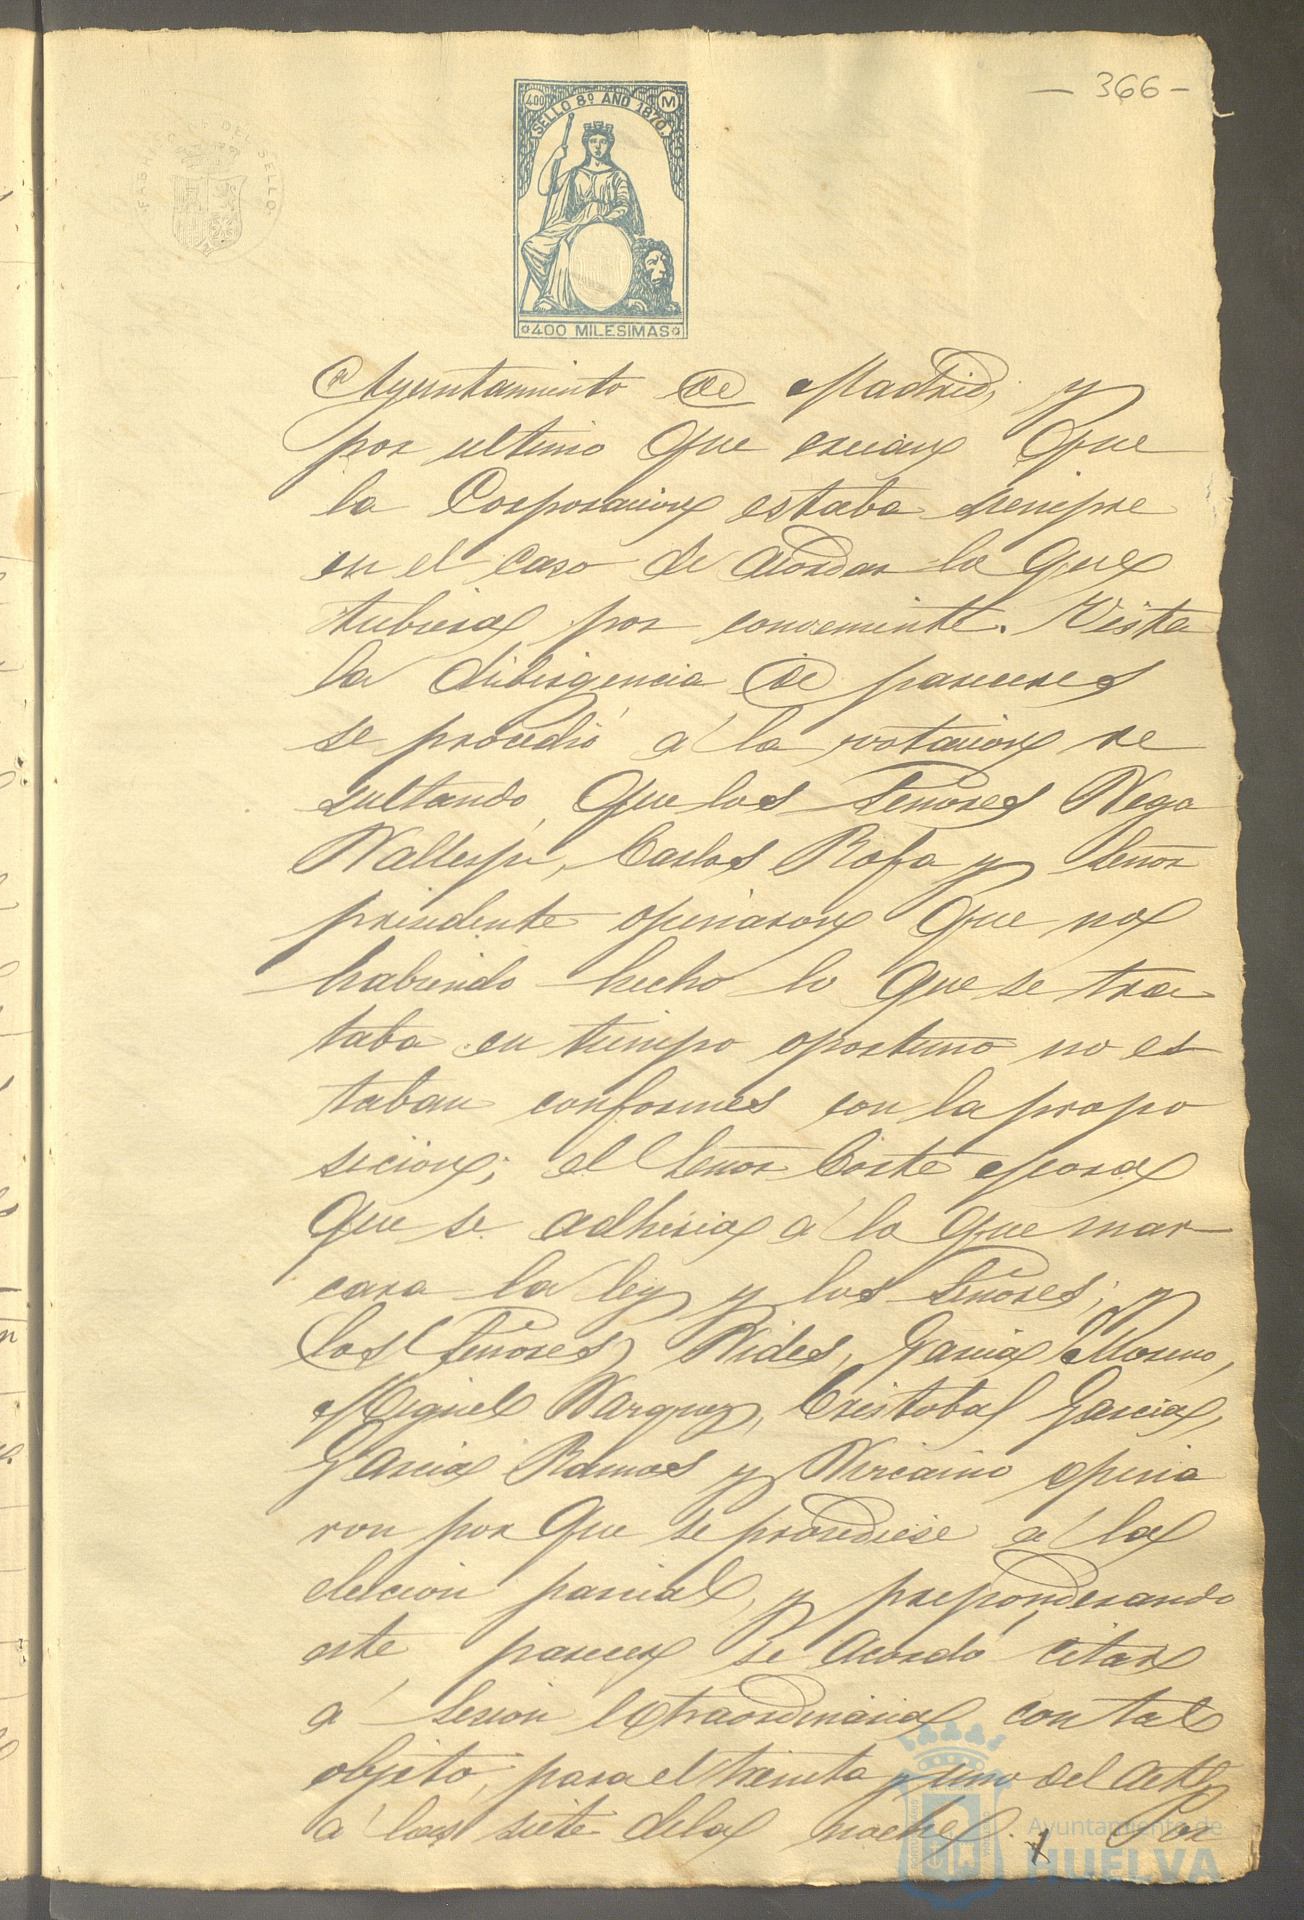 — 366 —
FABRICA DEL SELLO
400 SELLO 8º AÑO 1870. M
400 MILESIMAS
Ayuntamiento de Madrid, y
por ultimo que creian que
la Corporacion estaba siempre
en el caso de acordar lo que
tubiera por conveniente. Vista
la dibirgencia de pareceres
se procedió á la votacion re
sultando, que los Señores Vega
Vallespi, Carlos Rofa y Señor
presidente opinaron que no
habiendo hecho lo que se tra
taba en tiempo oportuno no es
taban conformes con la propo
sicion; el Señor Corte Mora
que se adheria a lo que mar
cara la ley y los Señores; y
los Señores Vides, Garcia Moreno,
Miguel Vazquez, Cristobal Garcia,
Garcia Ramos y Vizcaino opina
ron por que se procediese a la
eleccion parcial, y preponderando
este parecer se acordó citar
a sesion extraordinaria con tal
objeto, para el treinta y uno del actl
a las siete de la noche. Por
Ayuntamiento de
HUELVA